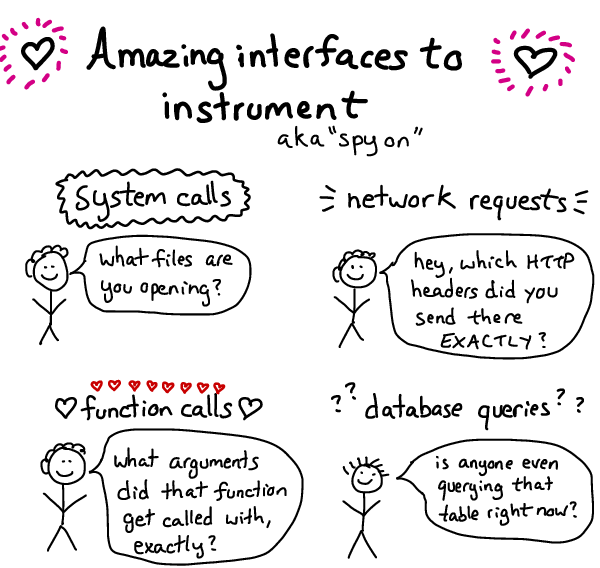 Amazing interfaces to
instrument
aka "spy on"
System calls
what files are
you opening?
network requests
hey, which HTTP
headers did you
send there
EXACTLY?
function calls
what arguments
did that function
get called with,
exactly?
?? database queries??
is anyone even
querying that
table right now?